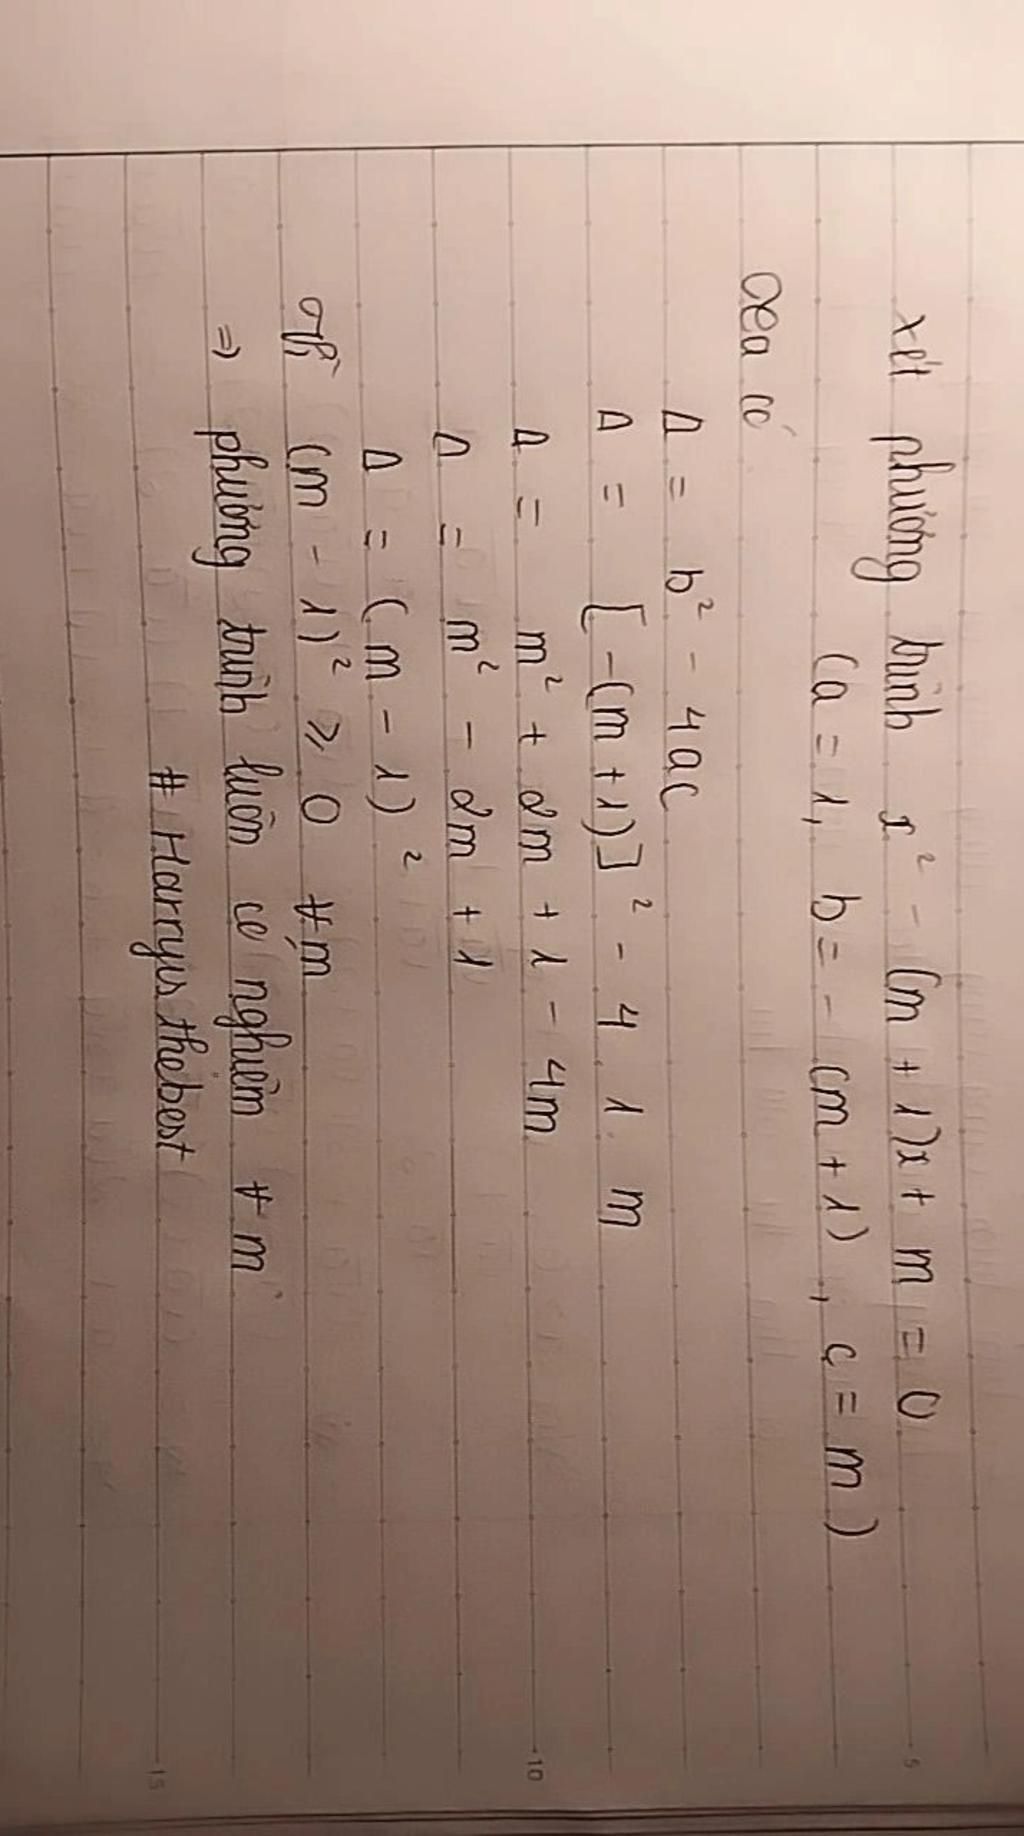 xét phương trình x² - (m + 1)x + m = 0
(a = 1, b = - (m + 1), c = m)
Ta có
Δ = b² - 4ac
Δ = [-(m + 1)]² - 4 . 1 . m
Δ = m² + 2m + 1 - 4m
Δ = m² - 2m + 1
Δ = (m - 1)²
Vì (m - 1)² ⩾ 0 ∀m
⇒ phương trình luôn có nghiệm ∀m
# Harryisthebest
5
10
15